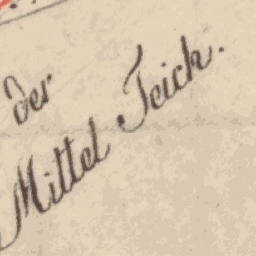 Der
Mittel Teich.